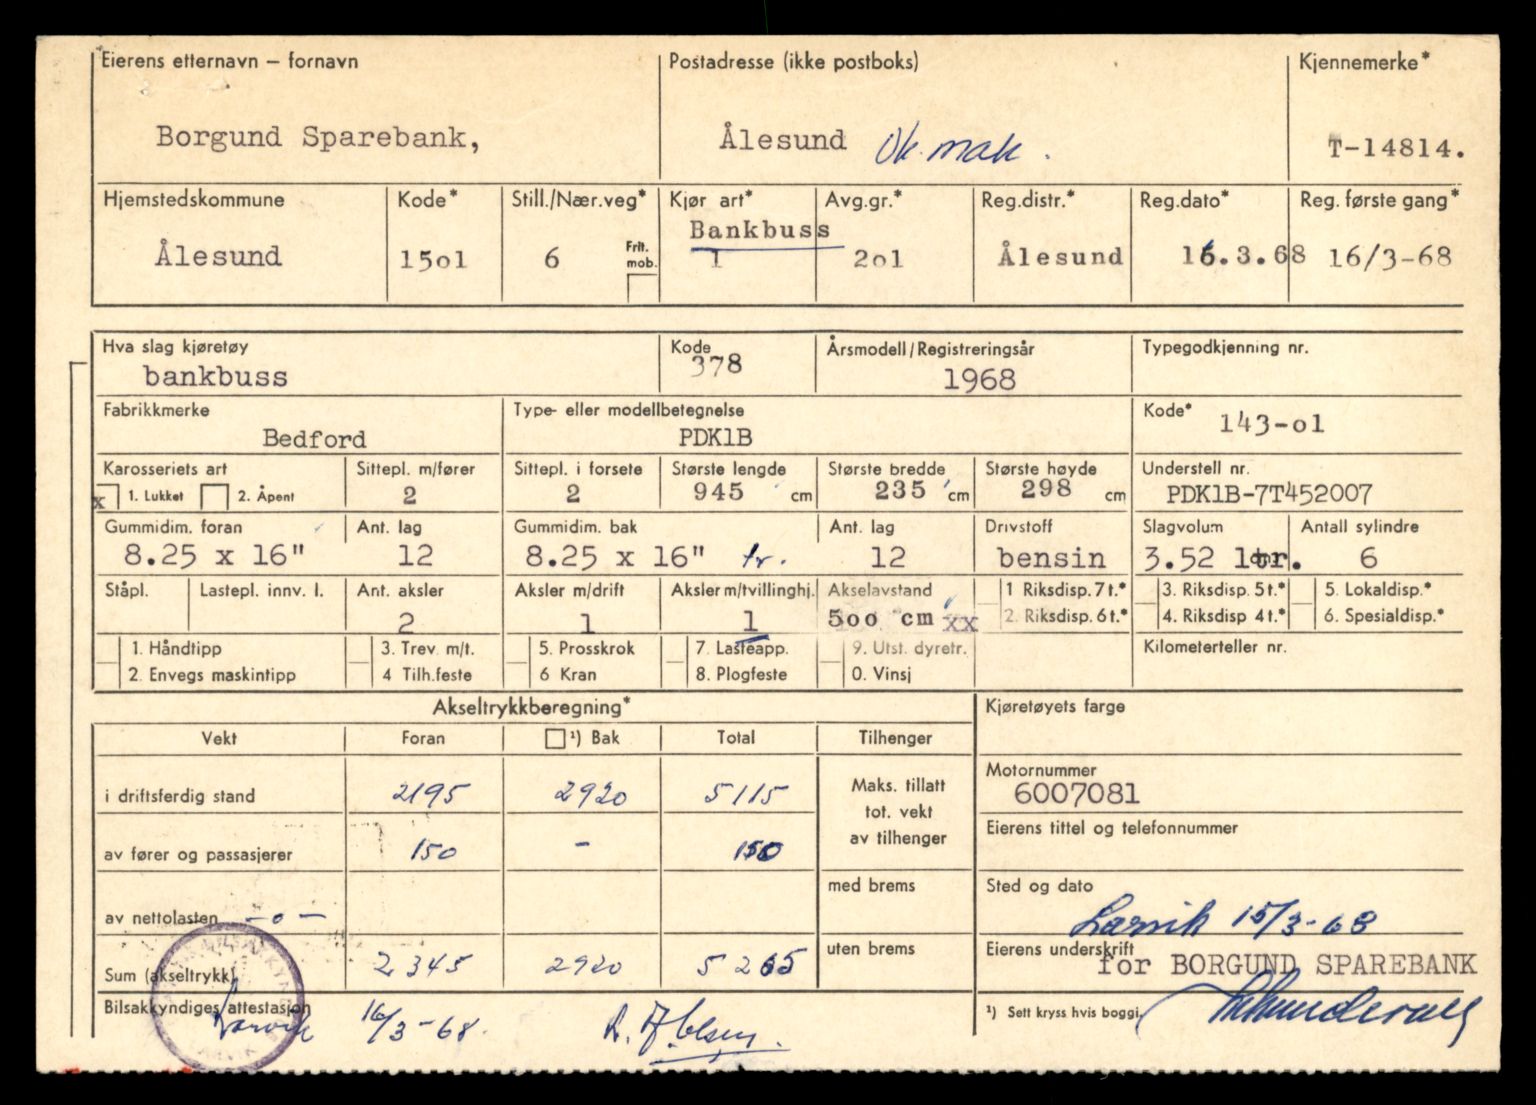 Eierens etternavn – fornavn Postadresse (ikke postboks) Kjennemerke*
Borgund Sparebank, Ålesund T-14814.
Hjemstedskommune Kode* Still./Nær.veg* Kjør art* Avg.gr.* Reg.distr.* Reg.dato* Reg. første gang*
Bankbuss
Ålesund 15o1 6 Frit. mob. 1 2o1 Ålesund 16.3.68 16/3-68
Hva slag kjøretøy Kode Årsmodell/Registreringsår Typegodkjenning nr.
bankbuss 378 1968
Fabrikkmerke Type- eller modellbetegnelse Kode* 143-o1
Bedford PDK1B
Karosseriets art Sittepl. m/fører Sittepl. i forsete Største lengde Største bredde Største høyde Understell nr.
x 1. Lukket 2. Åpent 2 2 945 cm 235 cm 298 cm PDK1B-7T452007
Gummidim. foran Ant. lag Gummidim. bak Ant. lag Drivstoff Slagvolum Antall sylindre
8.25 x 16" 12 8.25 x 16" tv. 12 bensin 3.52 ltr. 6
Ståpl. Lastepl. innv. l. Ant. aksler Aksler m/drift Aksler m/tvillinghj. Akselavstand 1 Riksdisp. 7 t.* 3. Riksdisp. 5 t.* 5. Lokaldisp.*
2 1 1 5oo cm xx 2. Riksdisp. 6 t.* 4. Riksdisp 4 t.* 6. Spesialdisp.*
1. Håndtipp 3. Trev. m/t. 5. Prosskrok 7. Lasteapp. 9. Utst. dyretr. Kilometerteller nr.
2. Envegs maskintipp 4 Tilh.feste 6 Kran 8. Plogfeste 0. Vinsj
Akseltrykkberegning* Kjøretøyets farge
Vekt Foran ¹) Bak Total Tilhenger
i driftsferdig stand 2195 2920 5115 Maks. tillatt tot. vekt av tilhenger Motornummer
6007081
av fører og passasjerer 150 – 150 Eierens tittel og telefonnummer
av nettolasten -o- med brems Sted og dato
Larvik 15/3-68
Sum (akseltrykk) 2345 2920 5265 uten brems Eierens underskrift
for BORGUND SPAREBANK
Bilsakkyndiges attestasjon ¹) Sett kryss hvis boggi.
Larvik 16/3-68.